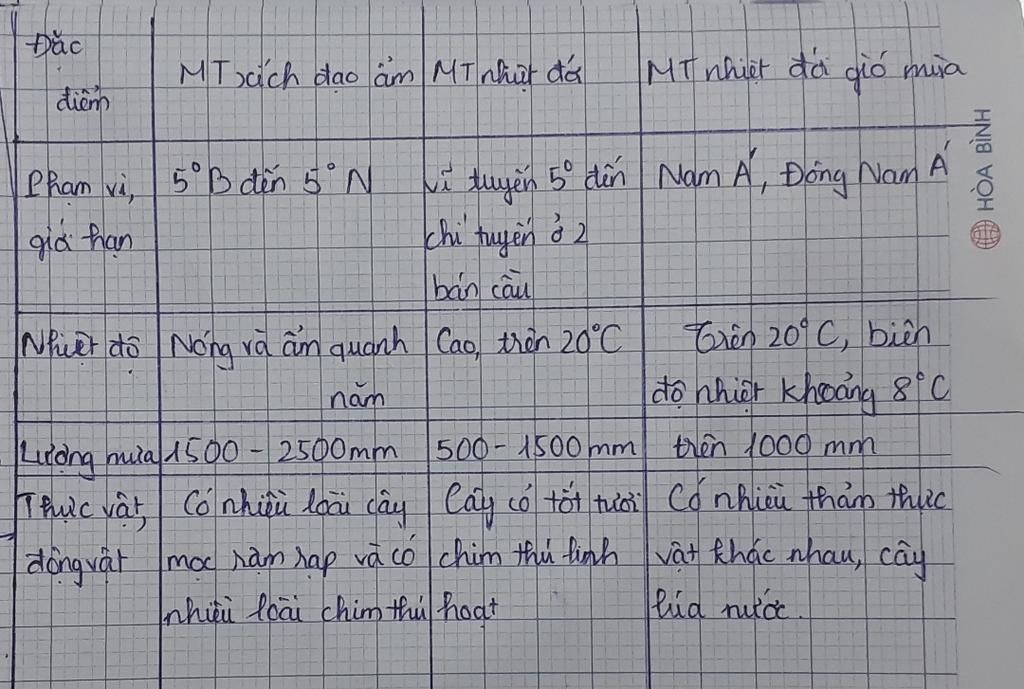 Đặc
điểm
MT xích đạo ẩm
MT nhiệt đới
MT nhiệt đới gió mùa
Phạm vi,
giới hạn
5°B đến 5°N
vĩ tuyến 5° đến
chí tuyến ở 2
bán cầu
Nam Á, Đông Nam Á
Nhiệt độ
Nóng và ẩm quanh
năm
Cao, trên 20°C
Trên 20°C, biên
độ nhiệt khoảng 8°C
Lượng mưa
1500 - 2500mm
500 - 1500mm
trên 1000 mm
Thực vật,
động vật
Có nhiều loài cây
mọc rậm rạp và có
nhiều loài chim thú
Cây cỏ tốt tươi
chim thú linh
hoạt
Có nhiều thảm thực
vật khác nhau, cây
lúa nước.
HÒA BÌNH